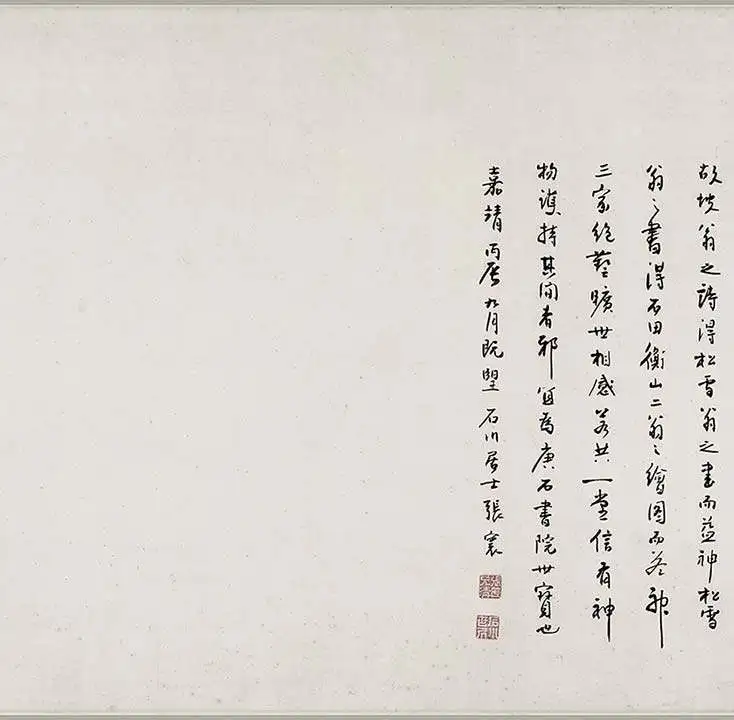 故坡翁之詩得松雪翁之書而益神松雪
翁之書得石田衡山二翁之繪圖而益神
三家絶藝曠世相感若共一堂信有神
物護持其間者邪宜為庚石書院世寶也
嘉靖丙辰九月既望石川居士張寰